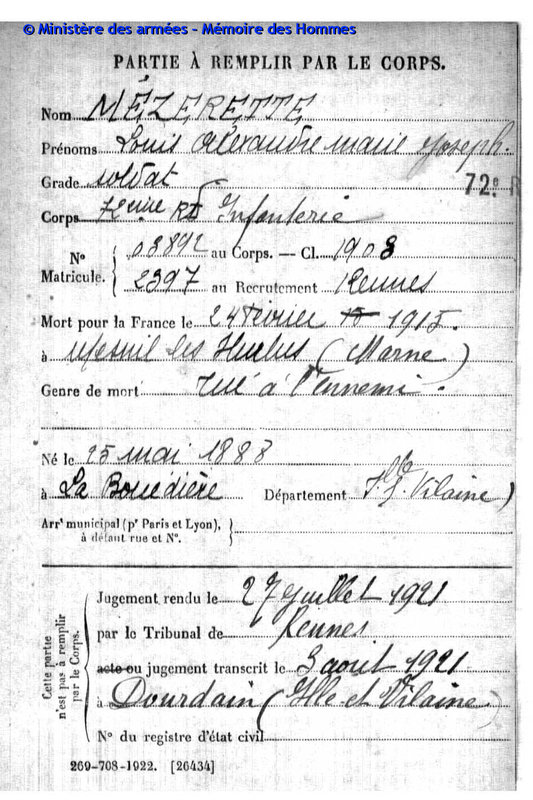 © Ministère des armées - Mémoire des Hommes
PARTIE À REMPLIR PAR LE CORPS.
Nom MÉZERETTE
Prénoms Louis Alexandre marie Joseph.
Grade soldat
72e R
Corps 72eme RI Infanterie
No Matricule.
03892 au Corps. — Cl. 1908
2397 au Recrutement Rennes
Mort pour la France le 24 février 15 1915.
à Mesnil les Hurlus (Marne)
Genre de mort tué à l'ennemi.
Né le 25 mai 1888
à La Bouëdière Département Ille & Vilaine)
Arrt municipal (pr Paris et Lyon),
à défaut rue et No.
Cette partie
n'est pas à remplir
par le Corps.
Jugement rendu le 27 Juillet 1921
par le Tribunal de Rennes
acte ou jugement transcrit le 3 août 1921
à Dourdain (Ille et Vilaine)
No du registre d'état civil
269-708-1922. [26434]